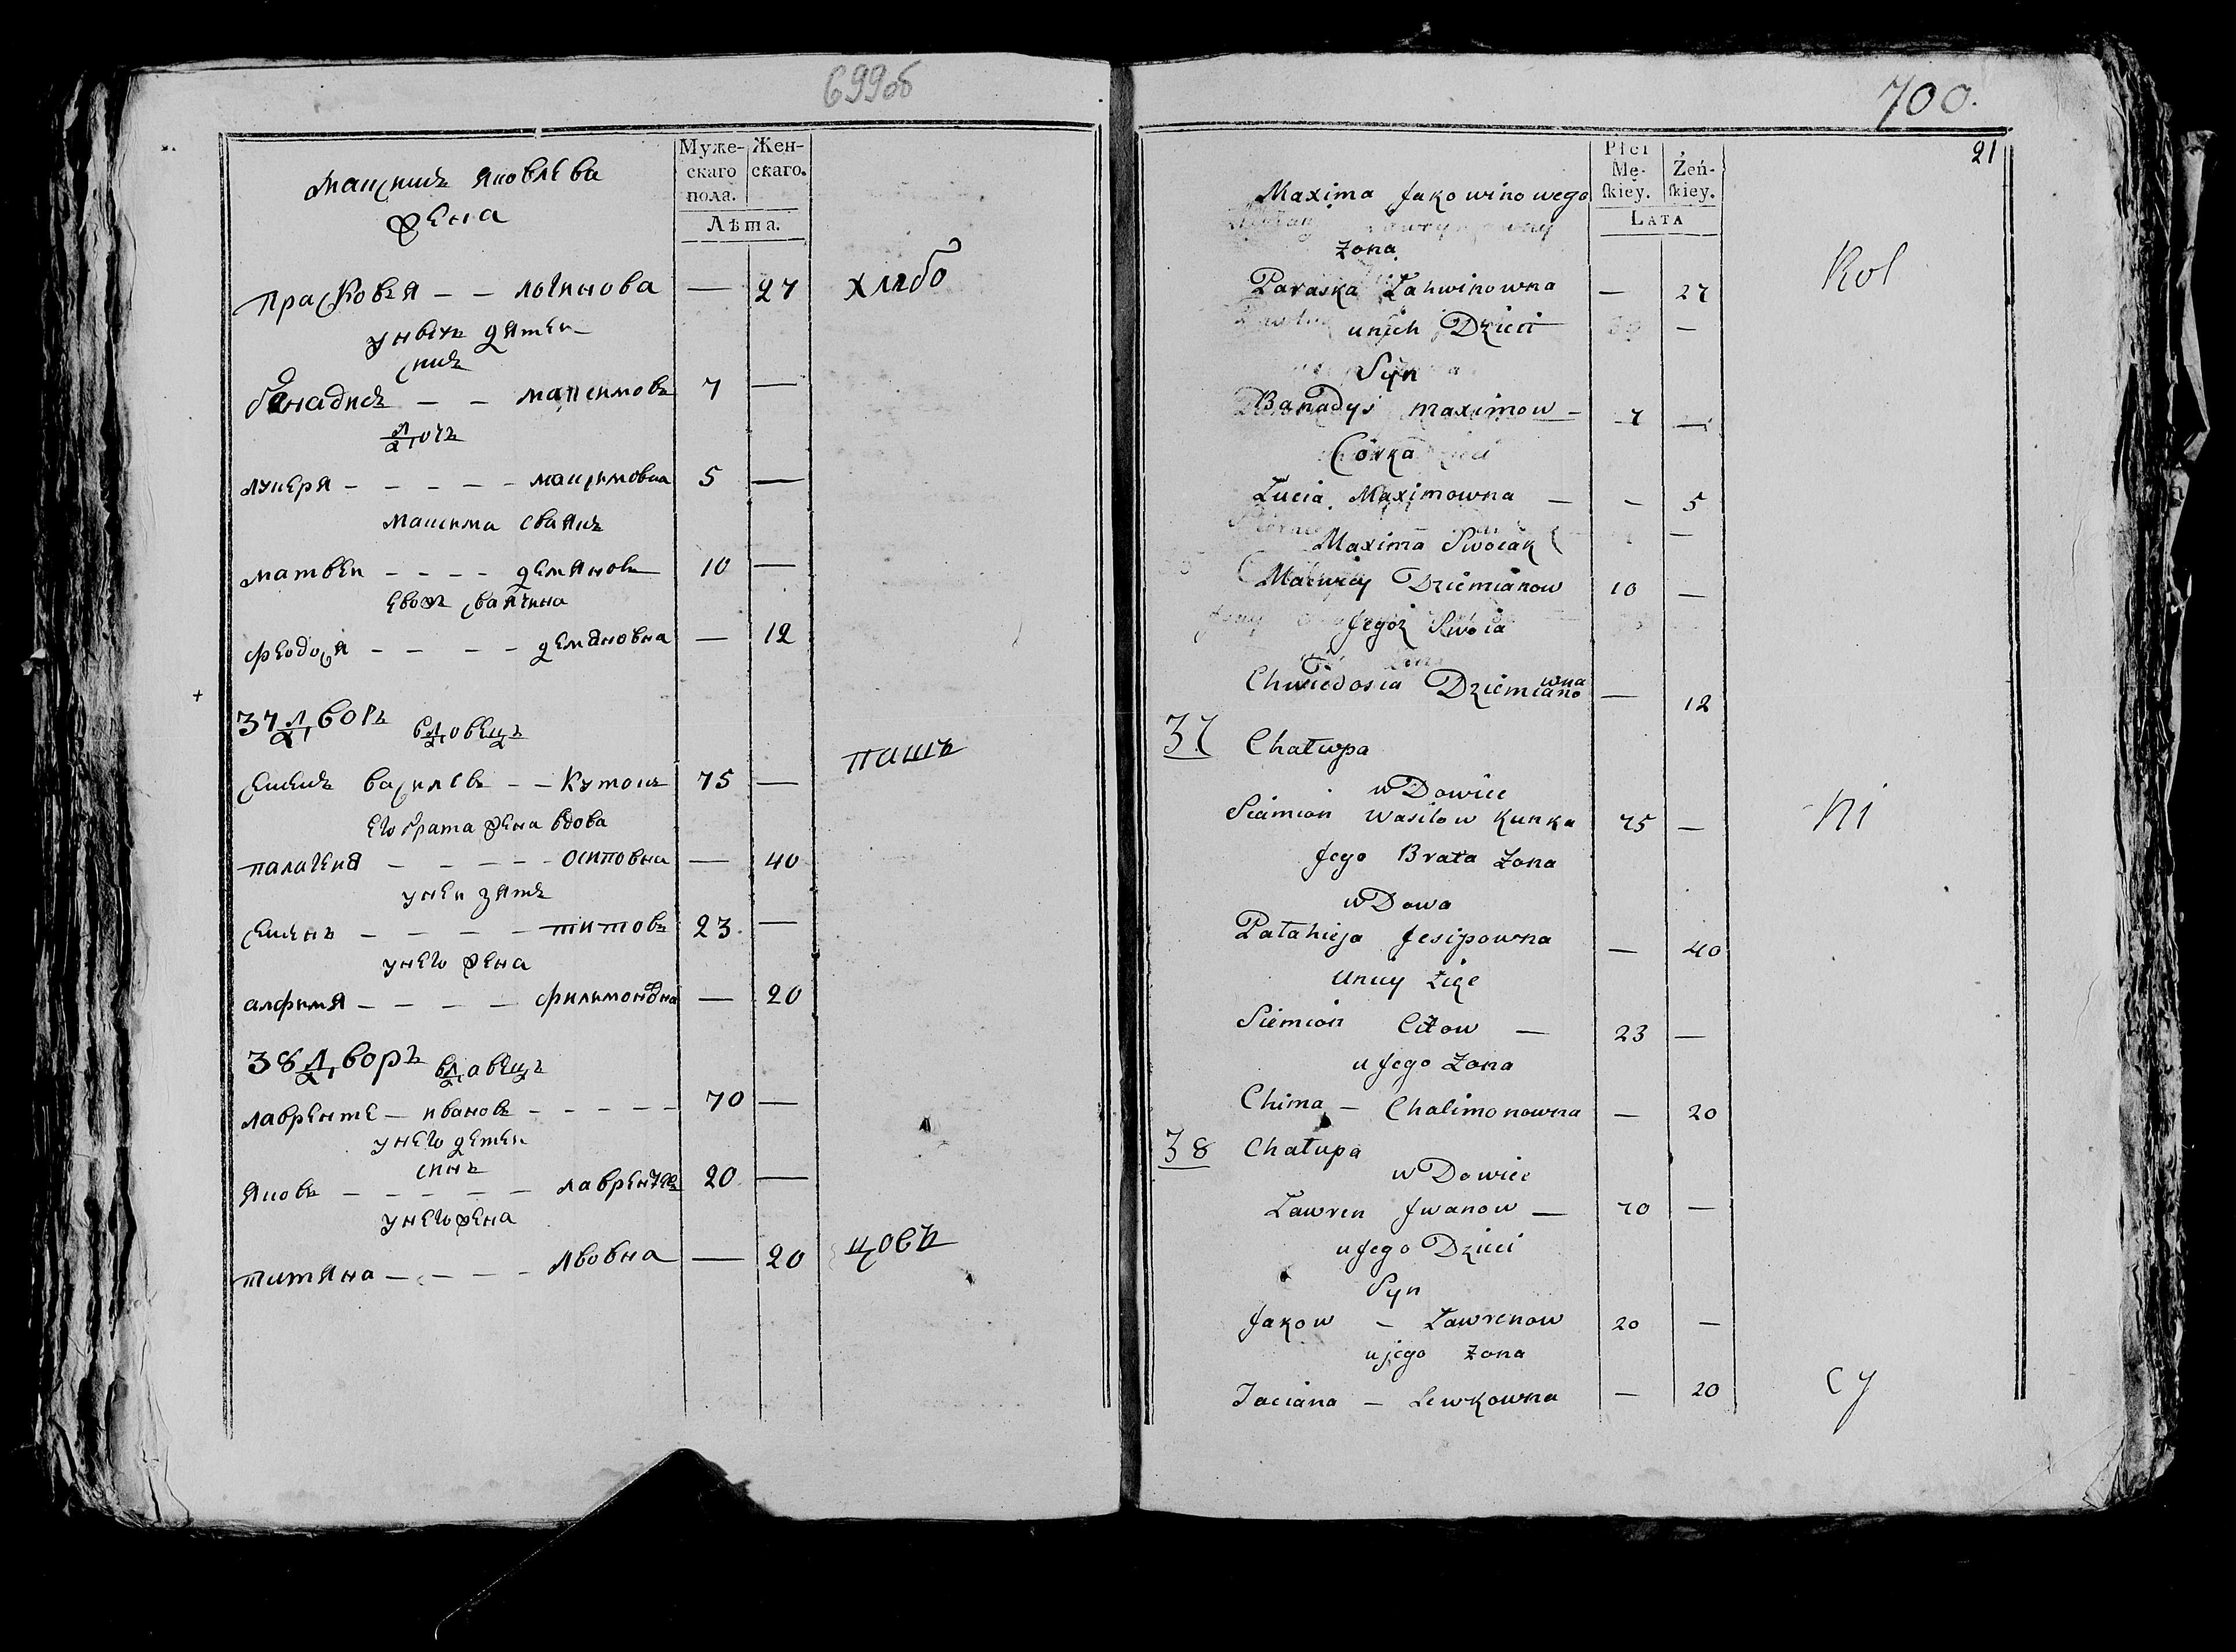 699об
Муже-
скаго
пола.
Жен-
скаго.
Лѣта.
Яковлева
жена
Прасковья – – логинова — 27 хлѣбо
унихъ дѣтеи
синъ
– – максимовъ 7 —
дочь
лукеря – – – – – максимовна 5 —
максима сваякъ
матвеи – – – – демяновъ 10 —
евожъ сваячина
феодося – – – – демяновна — 12
37 дворъ
вдовецъ
василевъ – – 75 — паш
его брата жена вдова
палагея – – – – – осиповна — 40
унеи зять
семенъ – – – – титовъ 23 —
унего жена
алфимя – – – – филимоновна — 20
38 дворъ
вдавецъ
лавренте – ивановъ – – – – – 70 —
унего детеи
синъ
яковъ – – – – – лаврентевъ 20 —
унего жена
титяна – – – – лвовна — 20 цовъ
700.
21
Płci
Mę-
ſkiey.
Żeń-
ſkiey.
LATA
Maxima Jakowinowego
Żona
Paraska Łahwinowna — 27 Kol
unich Dzieci —
Syn
Banadyś maximow – 7 —
Córka
Łucia Maximowna — – 5
Maxima Swoiak
Maćwiey Dziemianow 10 —
Jegoż Swoia
Chwiedosia Dziemianowna — 12
37 Chałupa
wDowiec
Siamion Wasilow Kunka 75 — Ni
Jego Brata Żona
wDowa
Pałahieja Jesipowna — 40
Unuy
Siemion Citow — 23 —
u Jego Żona
Chima – Chalimonowna — 20
38 Chałupa
wDowiec
Ławren Jwanow — 70 —
uJego Dzieci
Syn
Jakow – Ławrenow 20 —
ujego Żona
Taciana – Lewkowna — 20 cy